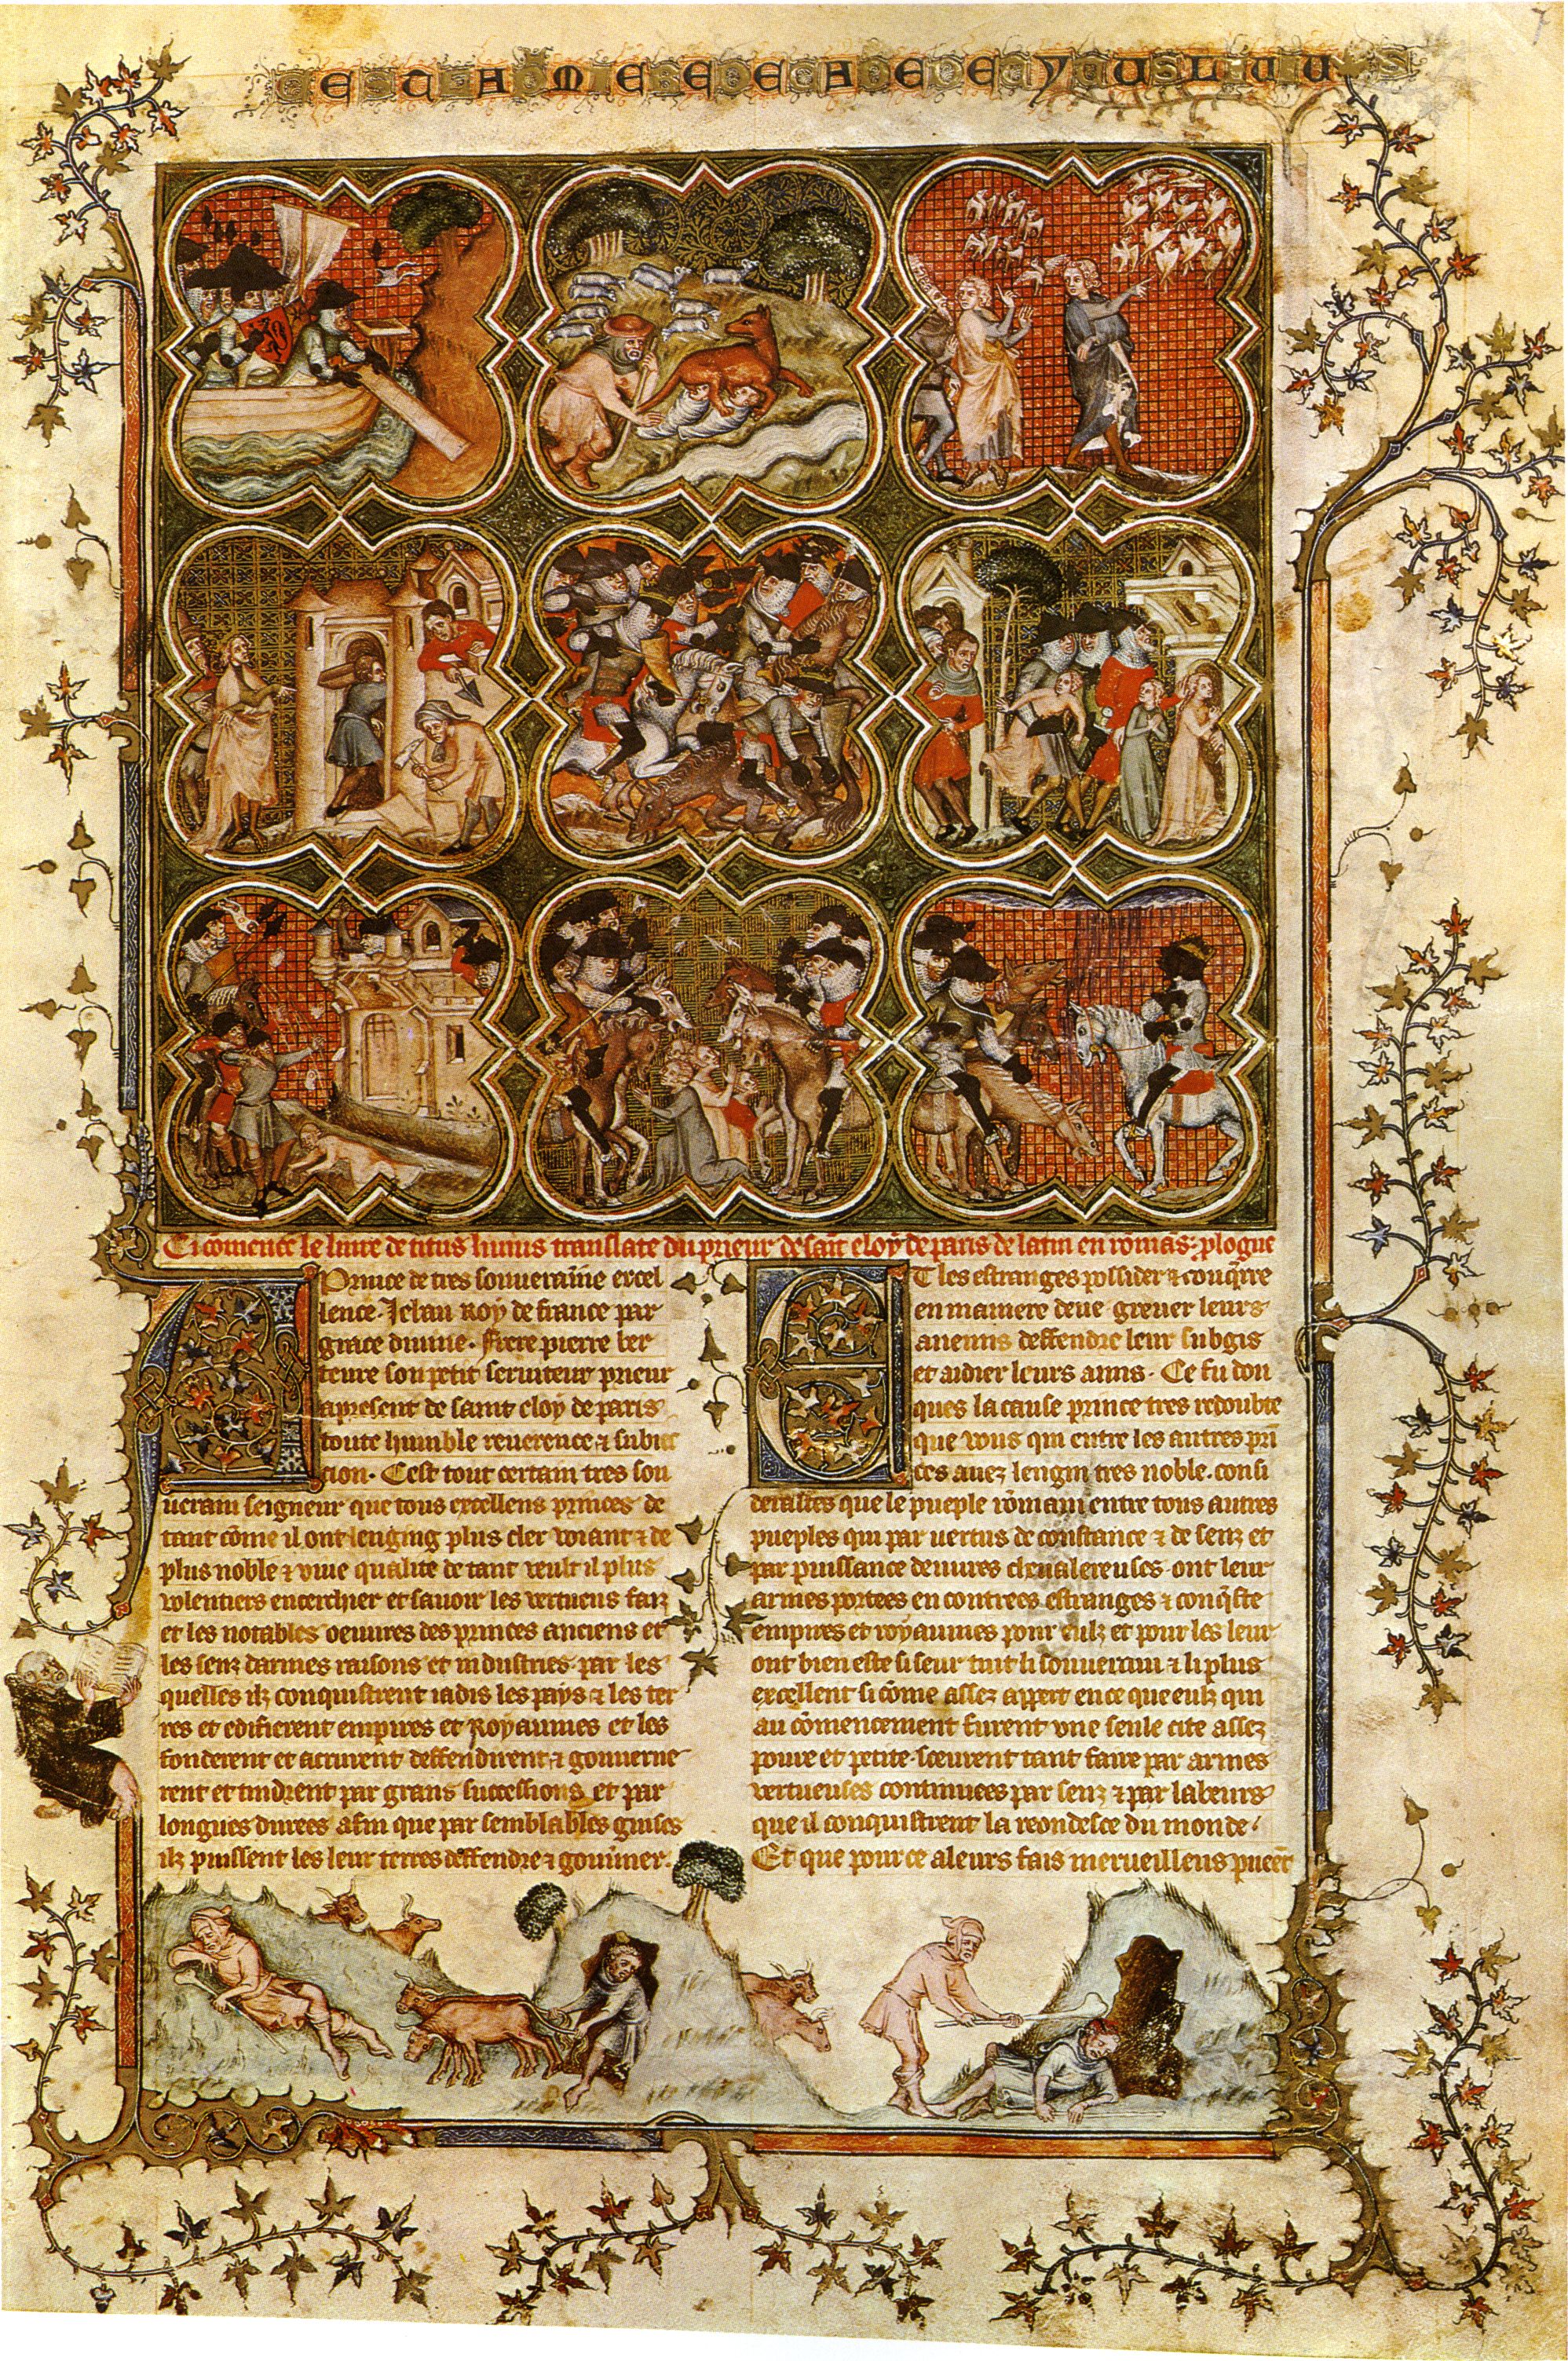 7
E T A M E E E E A E E E Y U S L U U S
Ci comence le liure de titus liuius translate du prieur de saīt eloy de paris de latin en romās : plogue
Prince de tres souueraīne excel
lence Jehan roy de france par
grace diuine. Frere pierre ber
teure son petit seruiteur prieur
apresent de saint eloy de paris
toute humble reuerence & subiec
cion. Cest tout certain tres sou
uerain seigneur que tous excellens princes de
tant cōme il ont lenging plus cler voiant & de
plus noble & viue qualite de tant veult il plus
volentiers encerchier et sauoir les vertueus faiz
et les notables oeuures des princes anciens et
les senz darmes raisons et industries par les
quelles ilz conquistrent iadis les pays & les ter
res et edifierent empires et Royaumes et les
fonderent et acrurent deffendirent & gouuerne
rent et tindrent par grans successions et par
longues durees afin que par semblables guises
ilz puissent les leur terres deffendre & gouūner.
ET les estranges possider & conq̄rre
en maniere deue greuer leurs
anemis deffendre leur subgis
et aidier leurs amis. Ce fu don
ques la cause prince tres redoubte
que vous qui entre les autres prī
ces auez lengin tres noble. consi
derastes que le pueple rōmain entre tous autres
pueples qui par uertus de constance & de senz et
par puissance deuures cheualereuses ont leur
armes portees en contrees estranges & conq̄ste
empires et royaumes pour eulz et pour les leur
ont bien este si seur tuit li souuerain & li plus
excellent si cōme assez appert en ce que eulz qui
au cōmencement furent vne seule cite assez
poure et petite. sceurent tant faire par armes
vertueuses continuees par senz & par labeurs
que il conquistrent la reondesce du monde.
Et que pour ce a leurs fais merueilleus puet